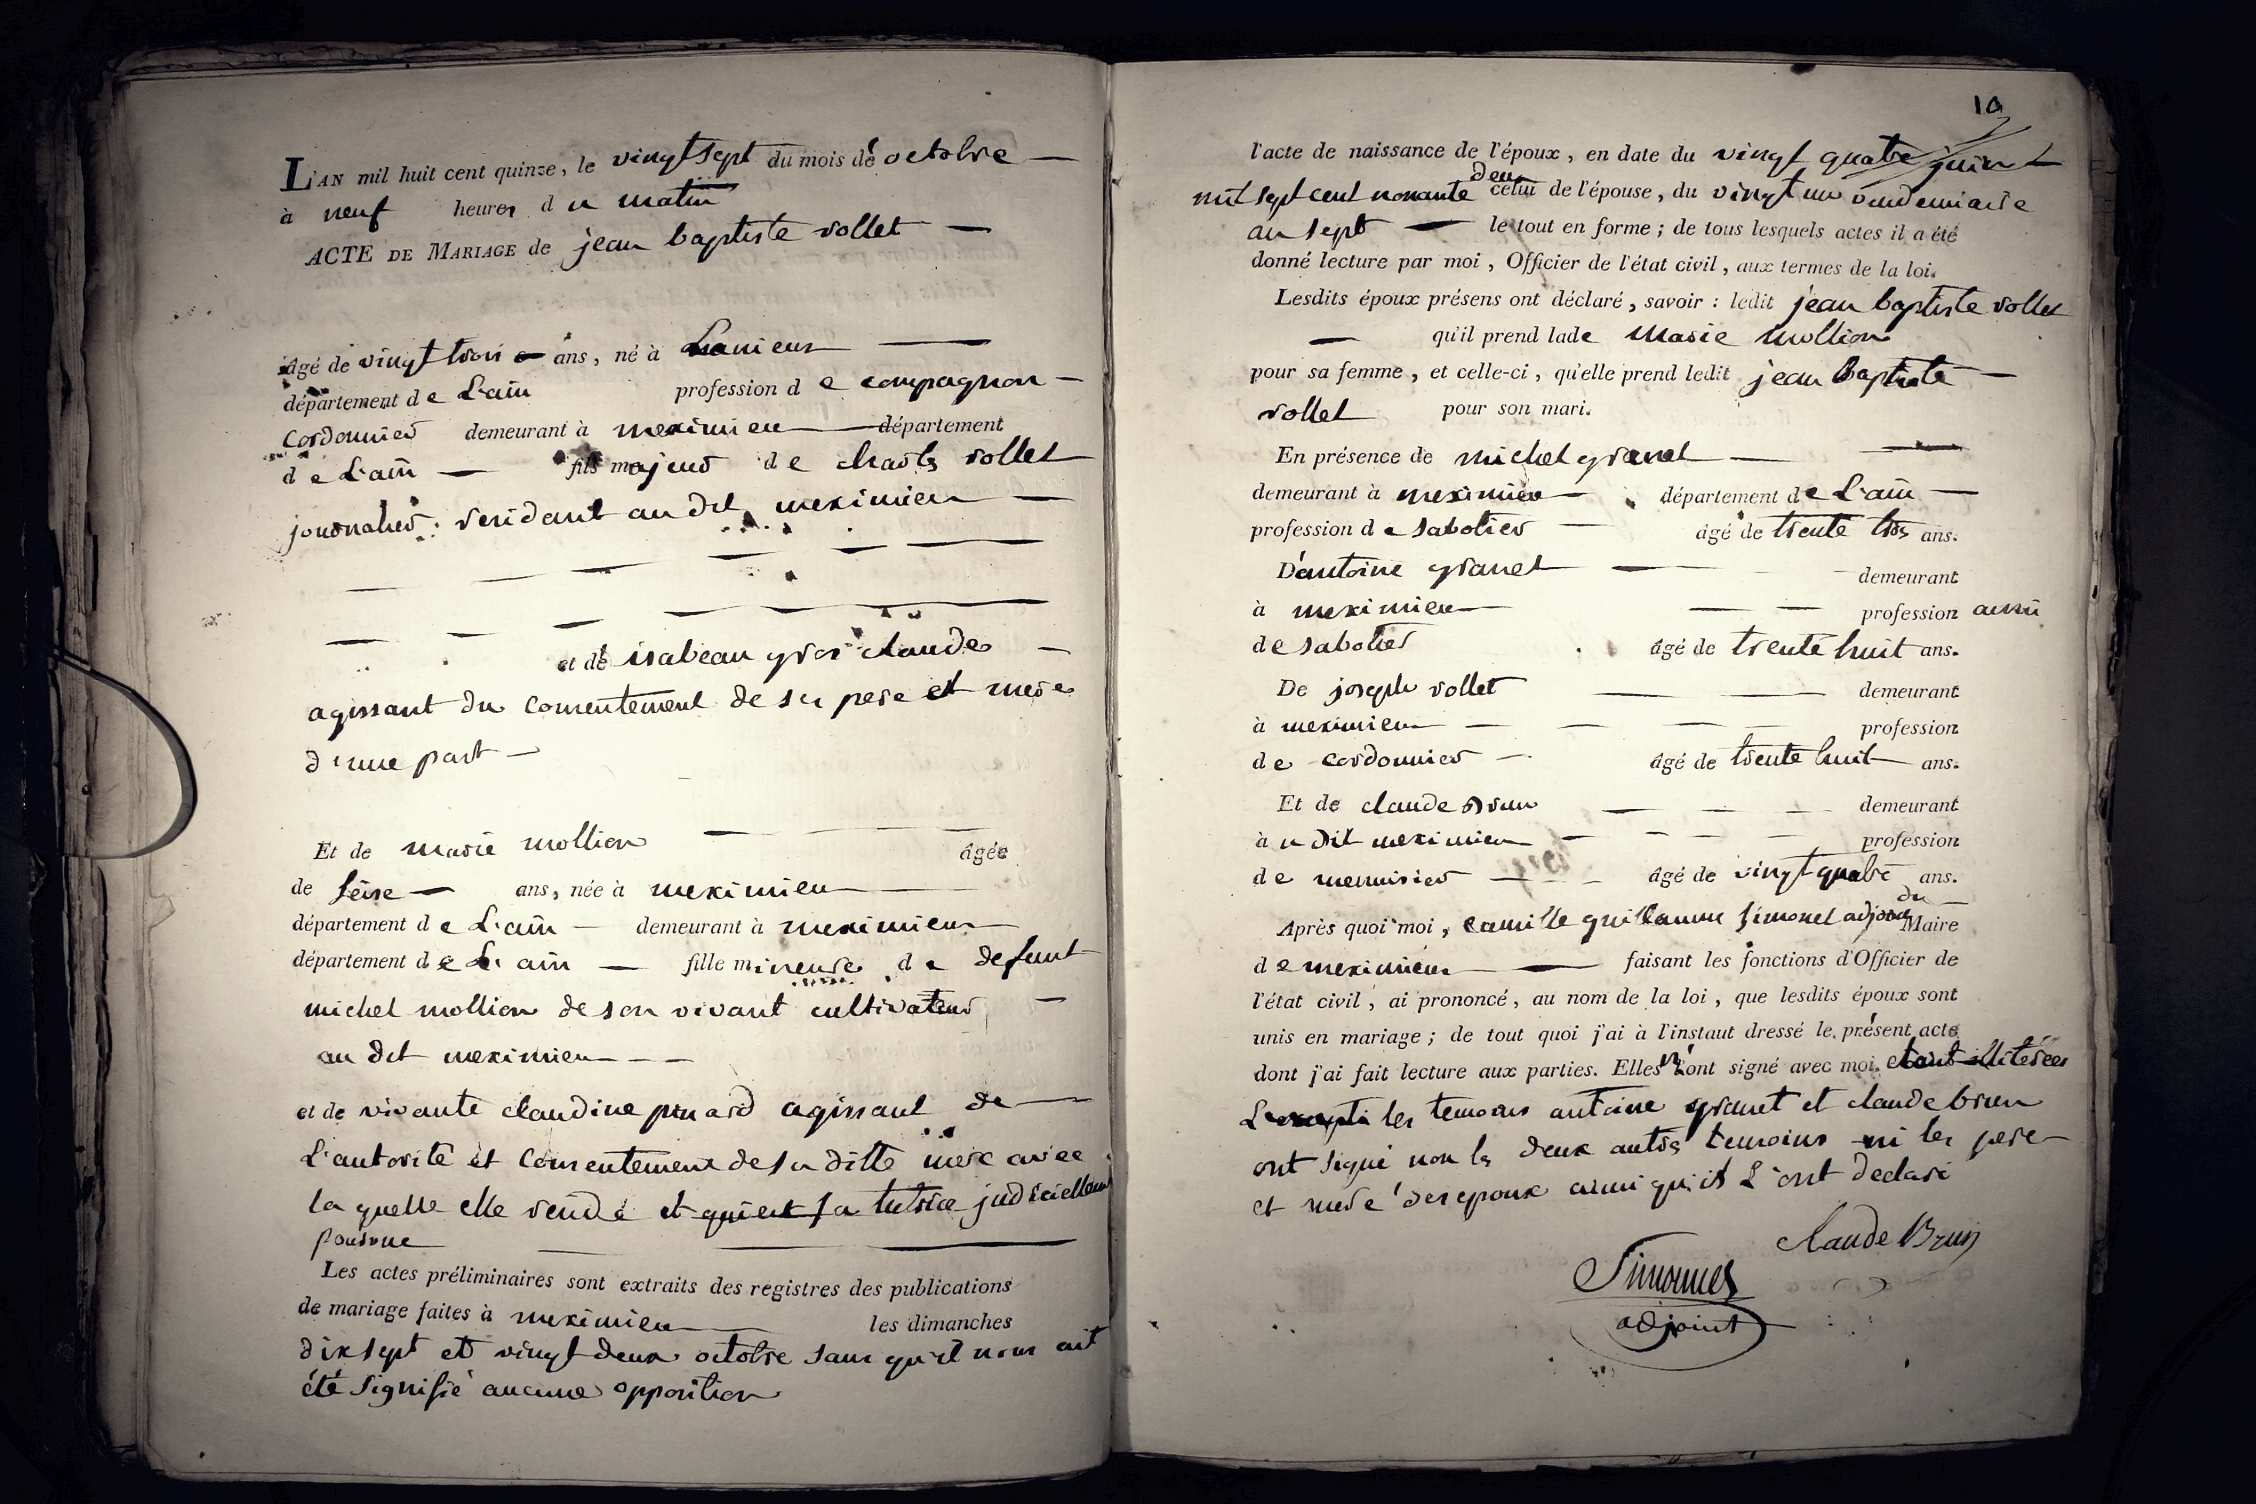 L'AN mil huit cent quinze, le vingt sept du mois de octobre
à neuf heures du matin
ACTE DE MARIAGE de jean baptiste vollet
âgé de vingt trois ans, né à
département de L'ain profession de compagnon
cordonnier demeurant à meximieu département
de L'ain fils majeur de charles vollet
journalier residant au dit meximieu
et de isabeau gros claude
agissant du consentement de ses pere et mere
d'une part
Et de marie mollion âgée
de seise ans, née à meximieu
département de L'ain demeurant à meximieu
département de L'ain fille mineure de defunt
michel mollion de son vivant cultivateur
au dit meximieu
et de vivante claudine agissant de
L'autorité et consentement de sa ditte mere avec
la quelle elle reside et qui est sa tutrice judiciellement
pourvue
Les actes préliminaires sont extraits des registres des publications
de mariage faites à meximieu les dimanches
dix sept et vingt deux octobre sans qu'il nous ait
été signifié aucune opposition
10
l'acte de naissance de l'époux, en date du vingt quatre juin
mil sept cent nonante deux celui de l'épouse, du vingt un vendemiaire
an sept le tout en forme; de tous lesquels actes il a été
donné lecture par moi, Officier de l'état civil, aux termes de la loi.
Lesdits époux présens ont déclaré, savoir: ledit jean baptiste vollet
qu'il prend lade marie mollion
pour sa femme, et celle-ci, qu'elle prend ledit jean Baptiste
vollet pour son mari.
En présence de michel granet
demeurant à meximieu département de L'ain
profession de sabotier âgé de trente trois ans.
D'antoine granet demeurant
à meximieu profession aussi
de sabotier âgé de trente huit ans.
De joseph vollet demeurant
à meximieu profession
de cordonnier âgé de trente huit ans.
Et de claude Brun demeurant
à u dit meximieu profession
de menuisier âgé de vingt quatre ans.
Après quoi moi, camille guillaume simonet adjoint du Maire
de meximieu faisant les fonctions d'Officier de
l'état civil, ai prononcé, au nom de la loi, que lesdits époux sont
unis en mariage; de tout quoi j'ai à l'instant dressé le présent acte
dont j'ai fait lecture aux parties. Elles n'ont signé avec moi étant illiterées
les temoins antoine granet et claude brun
ont signé non les deux autres temoins ni les pere
et mere des epoux ainsi qu'ils L'ont declaré
claude Brun
Simonnet
adjoint